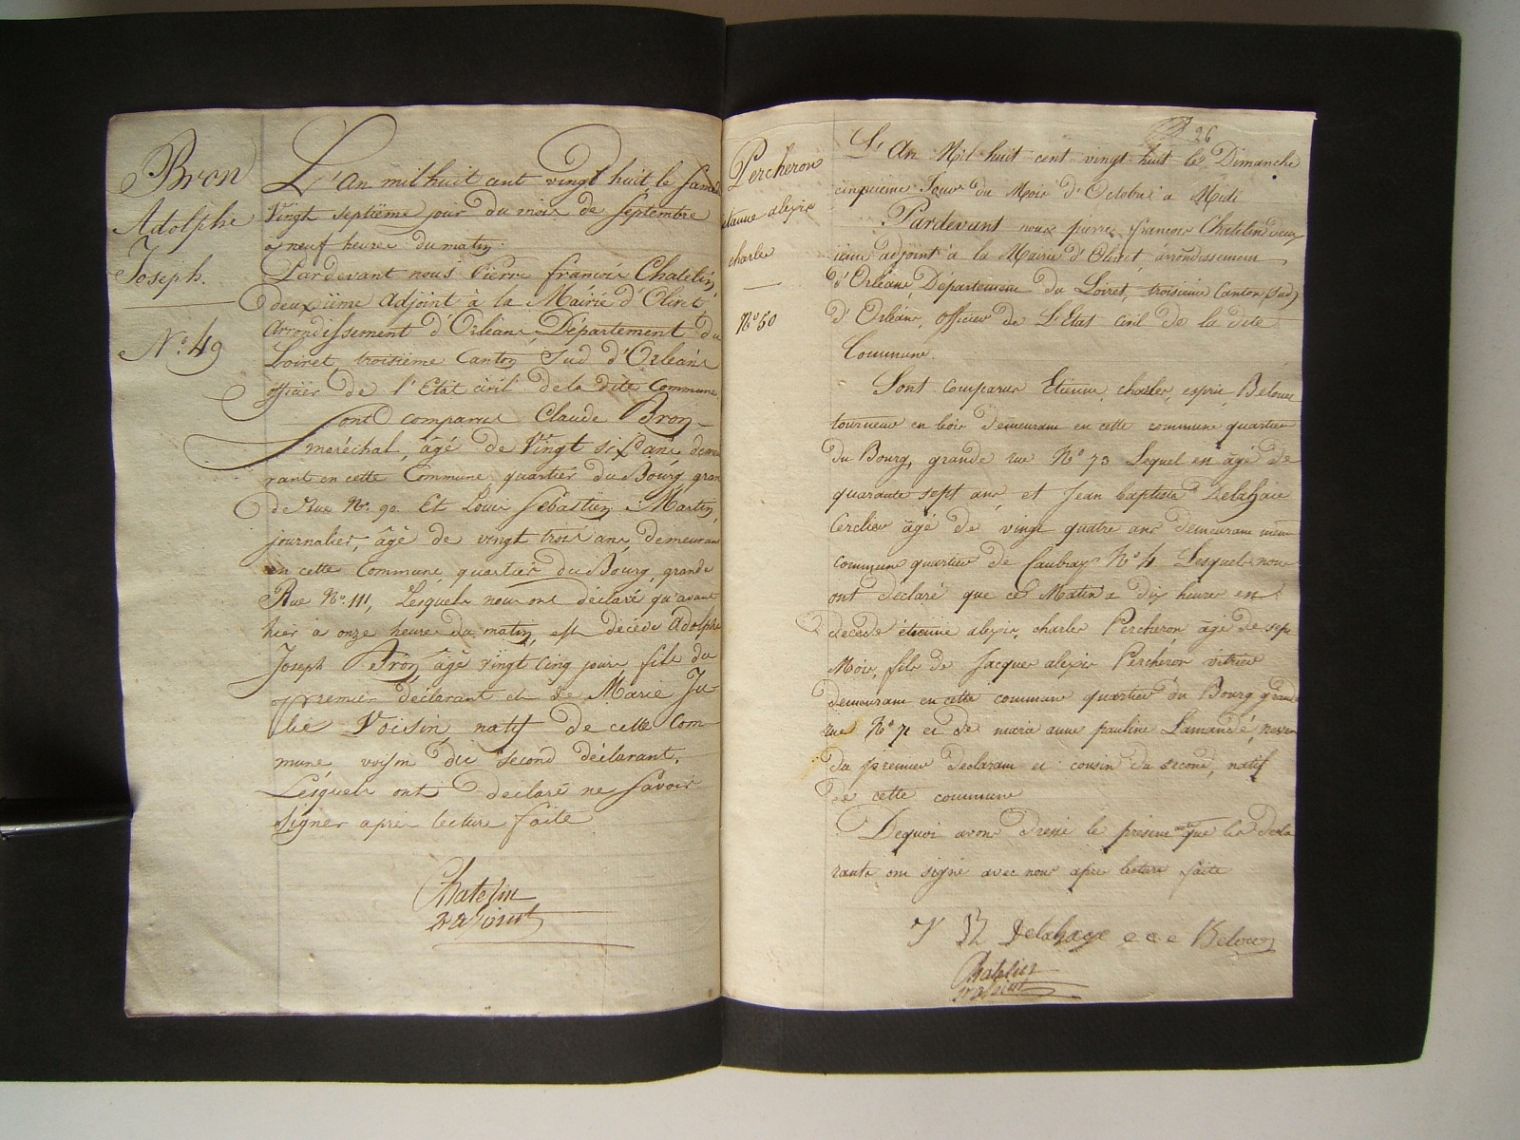 Bron
Adolphe
Joseph.
N.º 49
L'An mil huit cent vingt huit le Samedi
vingt septième jour du mois de Septembre
a neuf heures du matin:
Pardevant nous Pierre françois Chatelin,
deuxième Adjoint à la Mairie d'Olivet,
Arrondissement d'Orléans, Département du
Loiret, troisième Canton Sud d'Orléans
officier de l'Etat civil de la dite Commune
Sont comparus Claude Bron
maréchal, âgé de Vingt six ans demeu
rant en cette Commune quartier du Bourg gran
de Rue Nº. 90. Et Louis Sébastien Martin,
journalier, âgé de vingt trois ans, demeurant
en cette Commune quartier du Bourg, grande
Rue Nº. 111, Lesquels nous ont déclaré qu'avant
hier à onze heures du matin, est décédé Adolphe
Joseph Bron âgé vingt cinq jours fils du
premier déclarant et de Marie Ju
lie Voisin, natif de cette Com
mune voisin du second déclarant.
Lesquels ont déclaré ne Savoir
Signer après lecture faite
Chatelin
adjoint
26
Percheron
etienne alexis
charles
Nº 50
L'An Mil huit cent vingt huit le Dimanche
cinquieme Jour du Mois d'Octobre a Midi
Pardevant nous pierre françois Chatelin deux
ieme adjoint à la Mairie d'Olivet, arrondissement
d'Orléans, Département du Loiret, troisieme Canton (sud)
d'Orléans, officier de L'Etat civil de la dite
Commune.
Sont comparus Etienne, charles, esprit, Belouet
tourneur en bois demeurant en cette commune quartier
du Bourg, grande rue Nº 73 Lequel est âgé de
quarante sept ans, et Jean baptiste Delahaie
Cerclier âgé de vingt quatre ans demeurant même
commune quartier de Caubray Nº 4 Lesquels nous
ont declaré que ce Matin a dix heures est
decedé étienne alexis, charles Percheron âgé de sept
Mois, fils de Jacques alexis Percheron vitrier
demeurant en cette commune quartier du Bourg grande
rue Nº 71 et de marie anne pauline Lamandé, neveu
du premier declarant et cousin du second, natif
de cette commune
Dequoi avons dressé le présent acte que les decla
rants ont signé avec nous après lecture faite
J B Delahaye e c e Belouet
Chatelin
adjoint